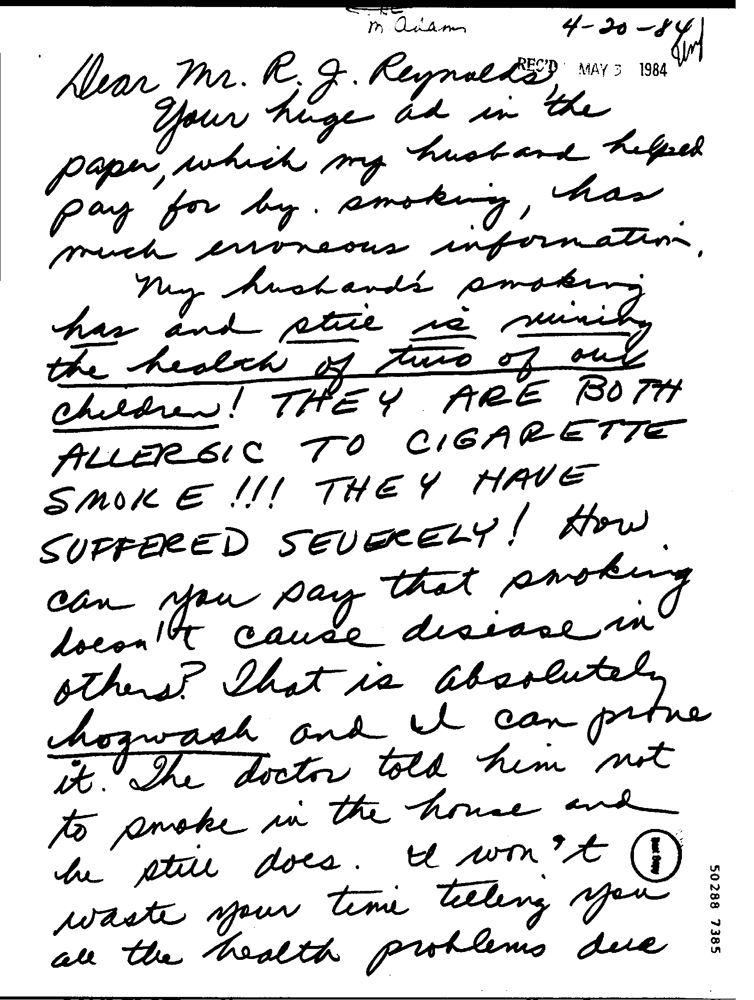 M Adams
4-20-84
REC'D MAY 3 1984
Dear Mr. R. J. Reynolds,
Your huge ad in the
paper, which my husband helped
pay for by. smoking, has
much erroneous information.
My husband's smoking
has and still is ruining
the health of two of our
children! THEY ARE BOTH
ALLERGIC TO CIGARETTE
SMOKE!!! THEY HAVE
SUFFERED SEVERELY! How
can you say that smoking
doesn't cause disease in
others? That is absolutely
hogwash and I can prove
it. The doctor told him not
to smoke in the house and
he still does. I won't
waste your time telling you
all the health problems due
Best Copy
50288 7385